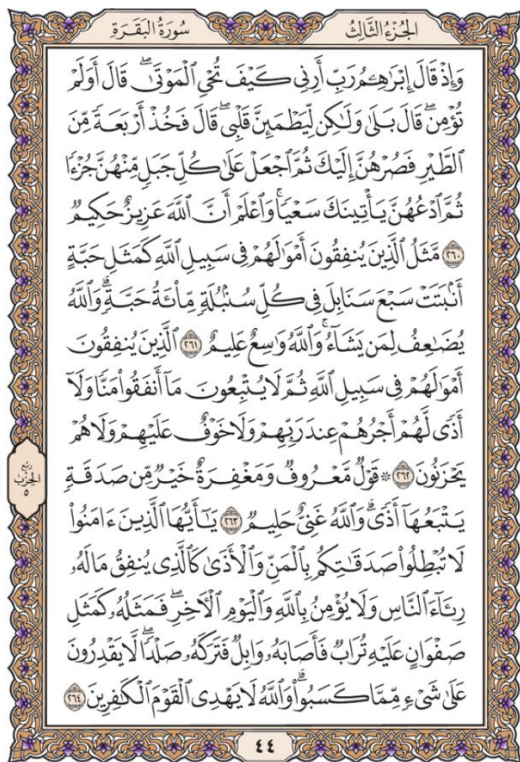 الجُزْءُ الثَّالِثُ
سُورَةُ البَقَرَةِ
وَإِذْ قَالَ إِبْرَٰهِـۧمُ رَبِّ أَرِنِى كَيْفَ تُحْىِ ٱلْمَوْتَىٰۖ قَالَ أَوَلَمْ
تُؤْمِنۖ قَالَ بَلَىٰ وَلَٰكِن لِّيَطْمَئِنَّ قَلْبِىۖ قَالَ فَخُذْ أَرْبَعَةً مِّنَ
ٱلطَّيْرِ فَصُرْهُنَّ إِلَيْكَ ثُمَّ ٱجْعَلْ عَلَىٰ كُلِّ جَبَلٍ مِّنْهُنَّ جُزْءًا
ثُمَّ ٱدْعُهُنَّ يَأْتِينَكَ سَعْيًاۚ وَٱعْلَمْ أَنَّ ٱللَّهَ عَزِيزٌ حَكِيمٌ
٢٦٠ مَّثَلُ ٱلَّذِينَ يُنفِقُونَ أَمْوَٰلَهُمْ فِى سَبِيلِ ٱللَّهِ كَمَثَلِ حَبَّةٍ
أَنۢبَتَتْ سَبْعَ سَنَابِلَ فِى كُلِّ سُنۢبُلَةٍ مِّا۟ئَةُ حَبَّةٍۗ وَٱللَّهُ
يُضَٰعِفُ لِمَن يَشَآءُۗ وَٱللَّهُ وَٰسِعٌ عَلِيمٌ ٢٦١ ٱلَّذِينَ يُنفِقُونَ
أَمْوَٰلَهُمْ فِى سَبِيلِ ٱللَّهِ ثُمَّ لَا يُتْبِعُونَ مَآ أَنفَقُوا۟ مَنًّا وَلَآ
أَذًىۙ لَّهُمْ أَجْرُهُمْ عِندَ رَبِّهِمْ وَلَا خَوْفٌ عَلَيْهِمْ وَلَا هُمْ
يَحْزَنُونَ ٢٦٢ ۞ قَوْلٌ مَّعْرُوفٌ وَمَغْفِرَةٌ خَيْرٌ مِّن صَدَقَةٍ
يَتْبَعُهَآ أَذًىۗ وَٱللَّهُ غَنِىٌّ حَلِيمٌ ٢٦٣ يَٰٓأَيُّهَا ٱلَّذِينَ ءَامَنُوا۟
لَا تُبْطِلُوا۟ صَدَقَٰتِكُم بِٱلْمَنِّ وَٱلْأَذَىٰ كَٱلَّذِى يُنفِقُ مَالَهُۥ
رِئَآءَ ٱلنَّاسِ وَلَا يُؤْمِنُ بِٱللَّهِ وَٱلْيَوْمِ ٱلْءَاخِرِۖ فَمَثَلُهُۥ كَمَثَلِ
صَفْوَانٍ عَلَيْهِ تُرَابٌ فَأَصَابَهُۥ وَابِلٌ فَتَرَكَهُۥ صَلْدًاۖ لَّا يَقْدِرُونَ
عَلَىٰ شَىْءٍ مِّمَّا كَسَبُوا۟ۗ وَٱللَّهُ لَا يَهْدِى ٱلْقَوْمَ ٱلْكَٰفِرِينَ ٢٦٤
ربع
الحزب
٥
٤٤